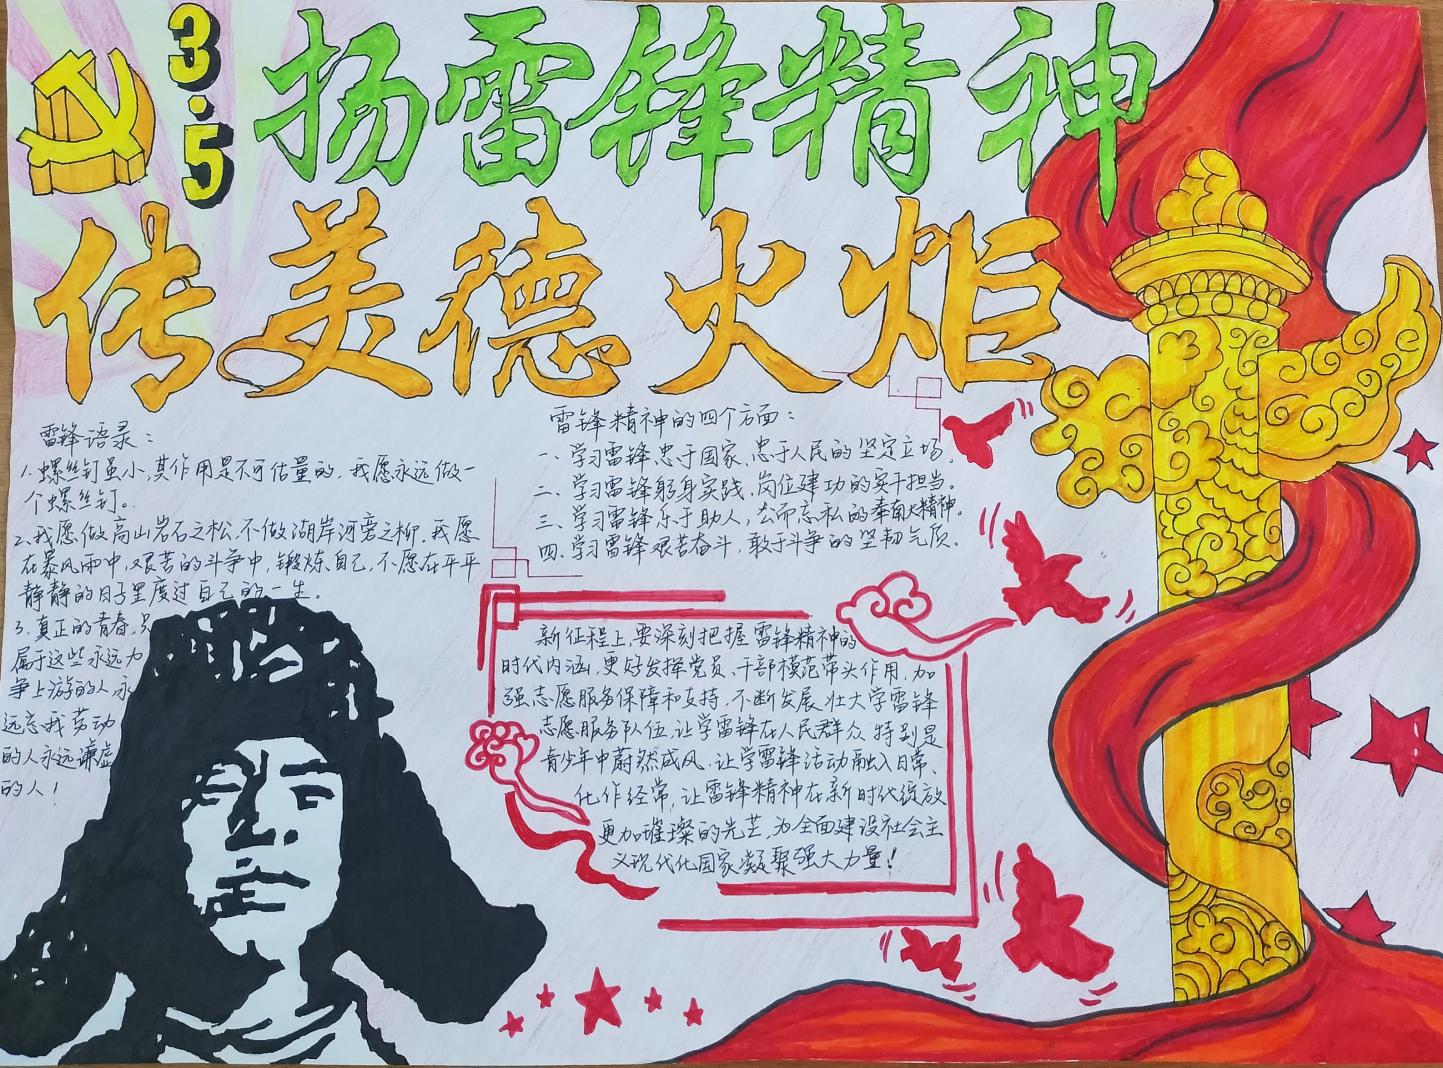 3.5
扬雷锋精神
传美德火炬
雷锋语录：
1.螺丝钉虽小,其作用是不可估量的,我愿永远做一
个螺丝钉。
2.我愿做高山岩石之松,不做湖岸河旁之柳,我愿
在暴风雨中,艰苦的斗争中,锻炼自己,不愿在平平
静静的日子里度过自己的一生。
3.真正的青春,只
属于这些永远力
争上游的人,永
远忘我劳动
的人永远谦虚
的人！
雷锋精神的四个方面：
一、学习雷锋忠于国家、忠于人民的坚定立场。
二、学习雷锋躬身实践、岗位建功的实干担当。
三、学习雷锋乐于助人,公而忘私的奉献精神。
四、学习雷锋艰苦奋斗,敢于斗争的坚韧气质。
新征程上,要深刻把握雷锋精神的
时代内涵,更好发挥党员、干部模范带头作用,加
强志愿服务保障和支持,不断发展壮大学雷锋
志愿服务队伍,让学雷锋在人民群众特别是
青少年中蔚然成风,让学雷锋活动融入日常、
化作经常,让雷锋精神在新时代绽放
更加璀璨的光芒,为全面建设社会主
义现代化国家凝聚强大力量！